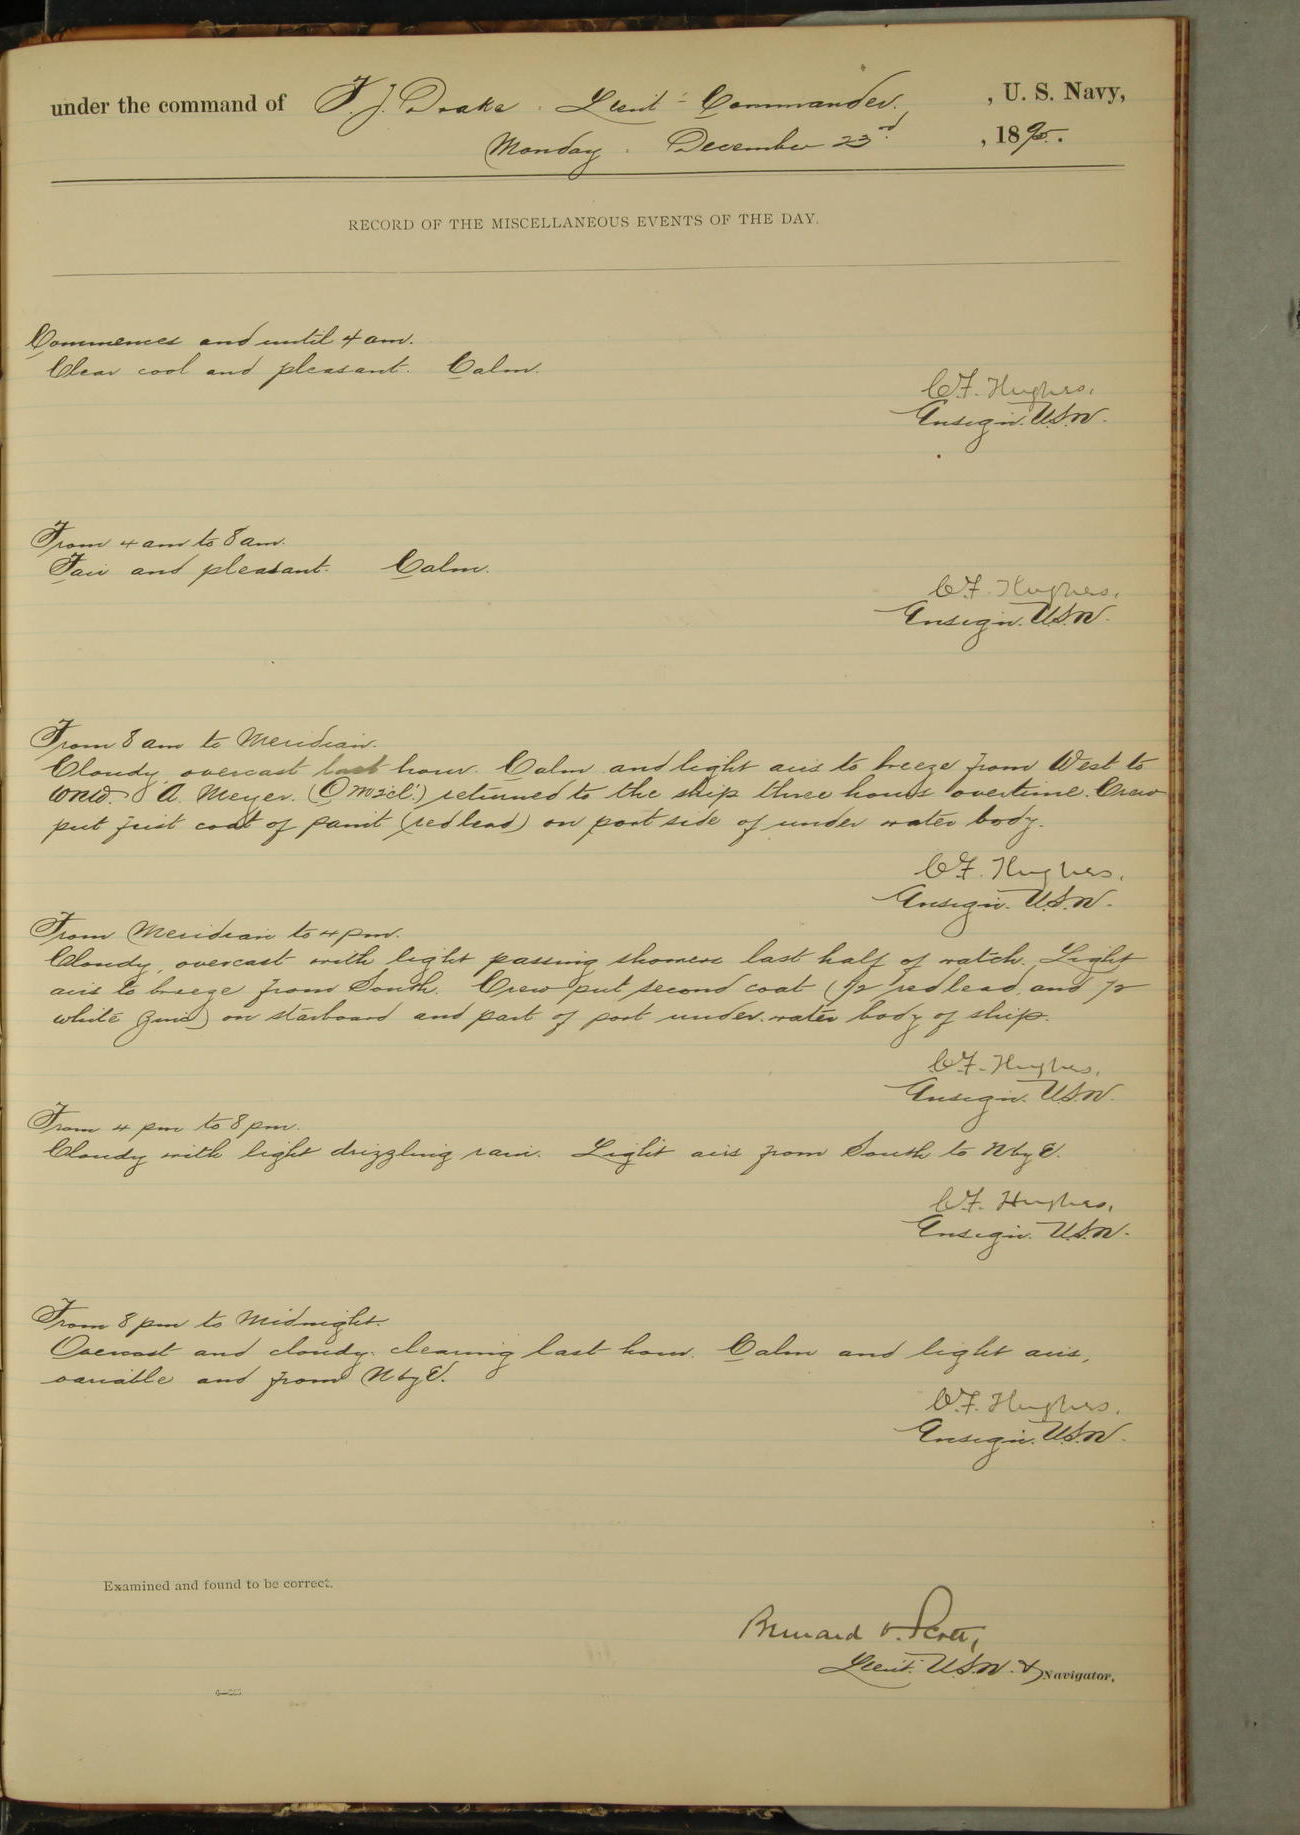 under the command of F. J. Drake. Lieut-Commander. , U. S. Navy,
Monday. December 23rd , 1895.
RECORD OF THE MISCELLANEOUS EVENTS OF THE DAY.
Commences and until 4 am.
Clear cool and pleasant. Calm.
C.F. Hughes.
Ensign. U.S.N.
From 4 am to 8 am.
Fair and pleasant. Calm.
C.F. Hughes.
Ensign. U.S.N.
From 8 am to Meridian.
Cloudy, overcast last hour. Calm and light airs to breeze from West to
WNW. A. Meyer. returned to the ship three hours overtime. Crew
put first coat of paint (red lead) on port side of under water body.
C.F. Hughes.
Ensign. U.S.N.
From Meridian to 4 pm.
Cloudy, overcast with light passing showers last half of watch. Light
airs to breeze from South. Crew put second coat (1/2 red lead and 1/2
white zinc) on starboard and part of port under water body of ship.
C.F. Hughes.
Ensign. U.S.N.
From 4 pm to 8 pm.
Cloudy with light drizzling rain. Light airs from South to N by E.
C.F. Hughes.
Ensign. U.S.N.
From 8 pm to Midnight.
Overcast and cloudy. clearing last hour. Calm and light airs,
variable and from N by E.
C.F. Hughes.
Ensign. U.S.N.
Examined and found to be correct.
Bernard O. Scott,
Lieut. U.S.N. & Navigator.